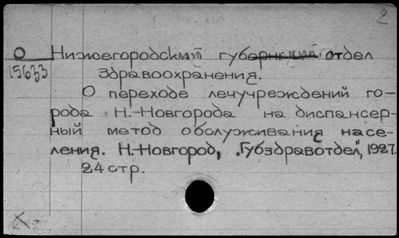 2
О Нижегородский губернский отдел
15633 здравоохранения.
О переходе лечучреждений го-
рода Н.-Новгорода на диспансер-
ный метод обслуживания насе-
ления. Н.-Новгород, „Губздравотдел", 1927.
24 стр.